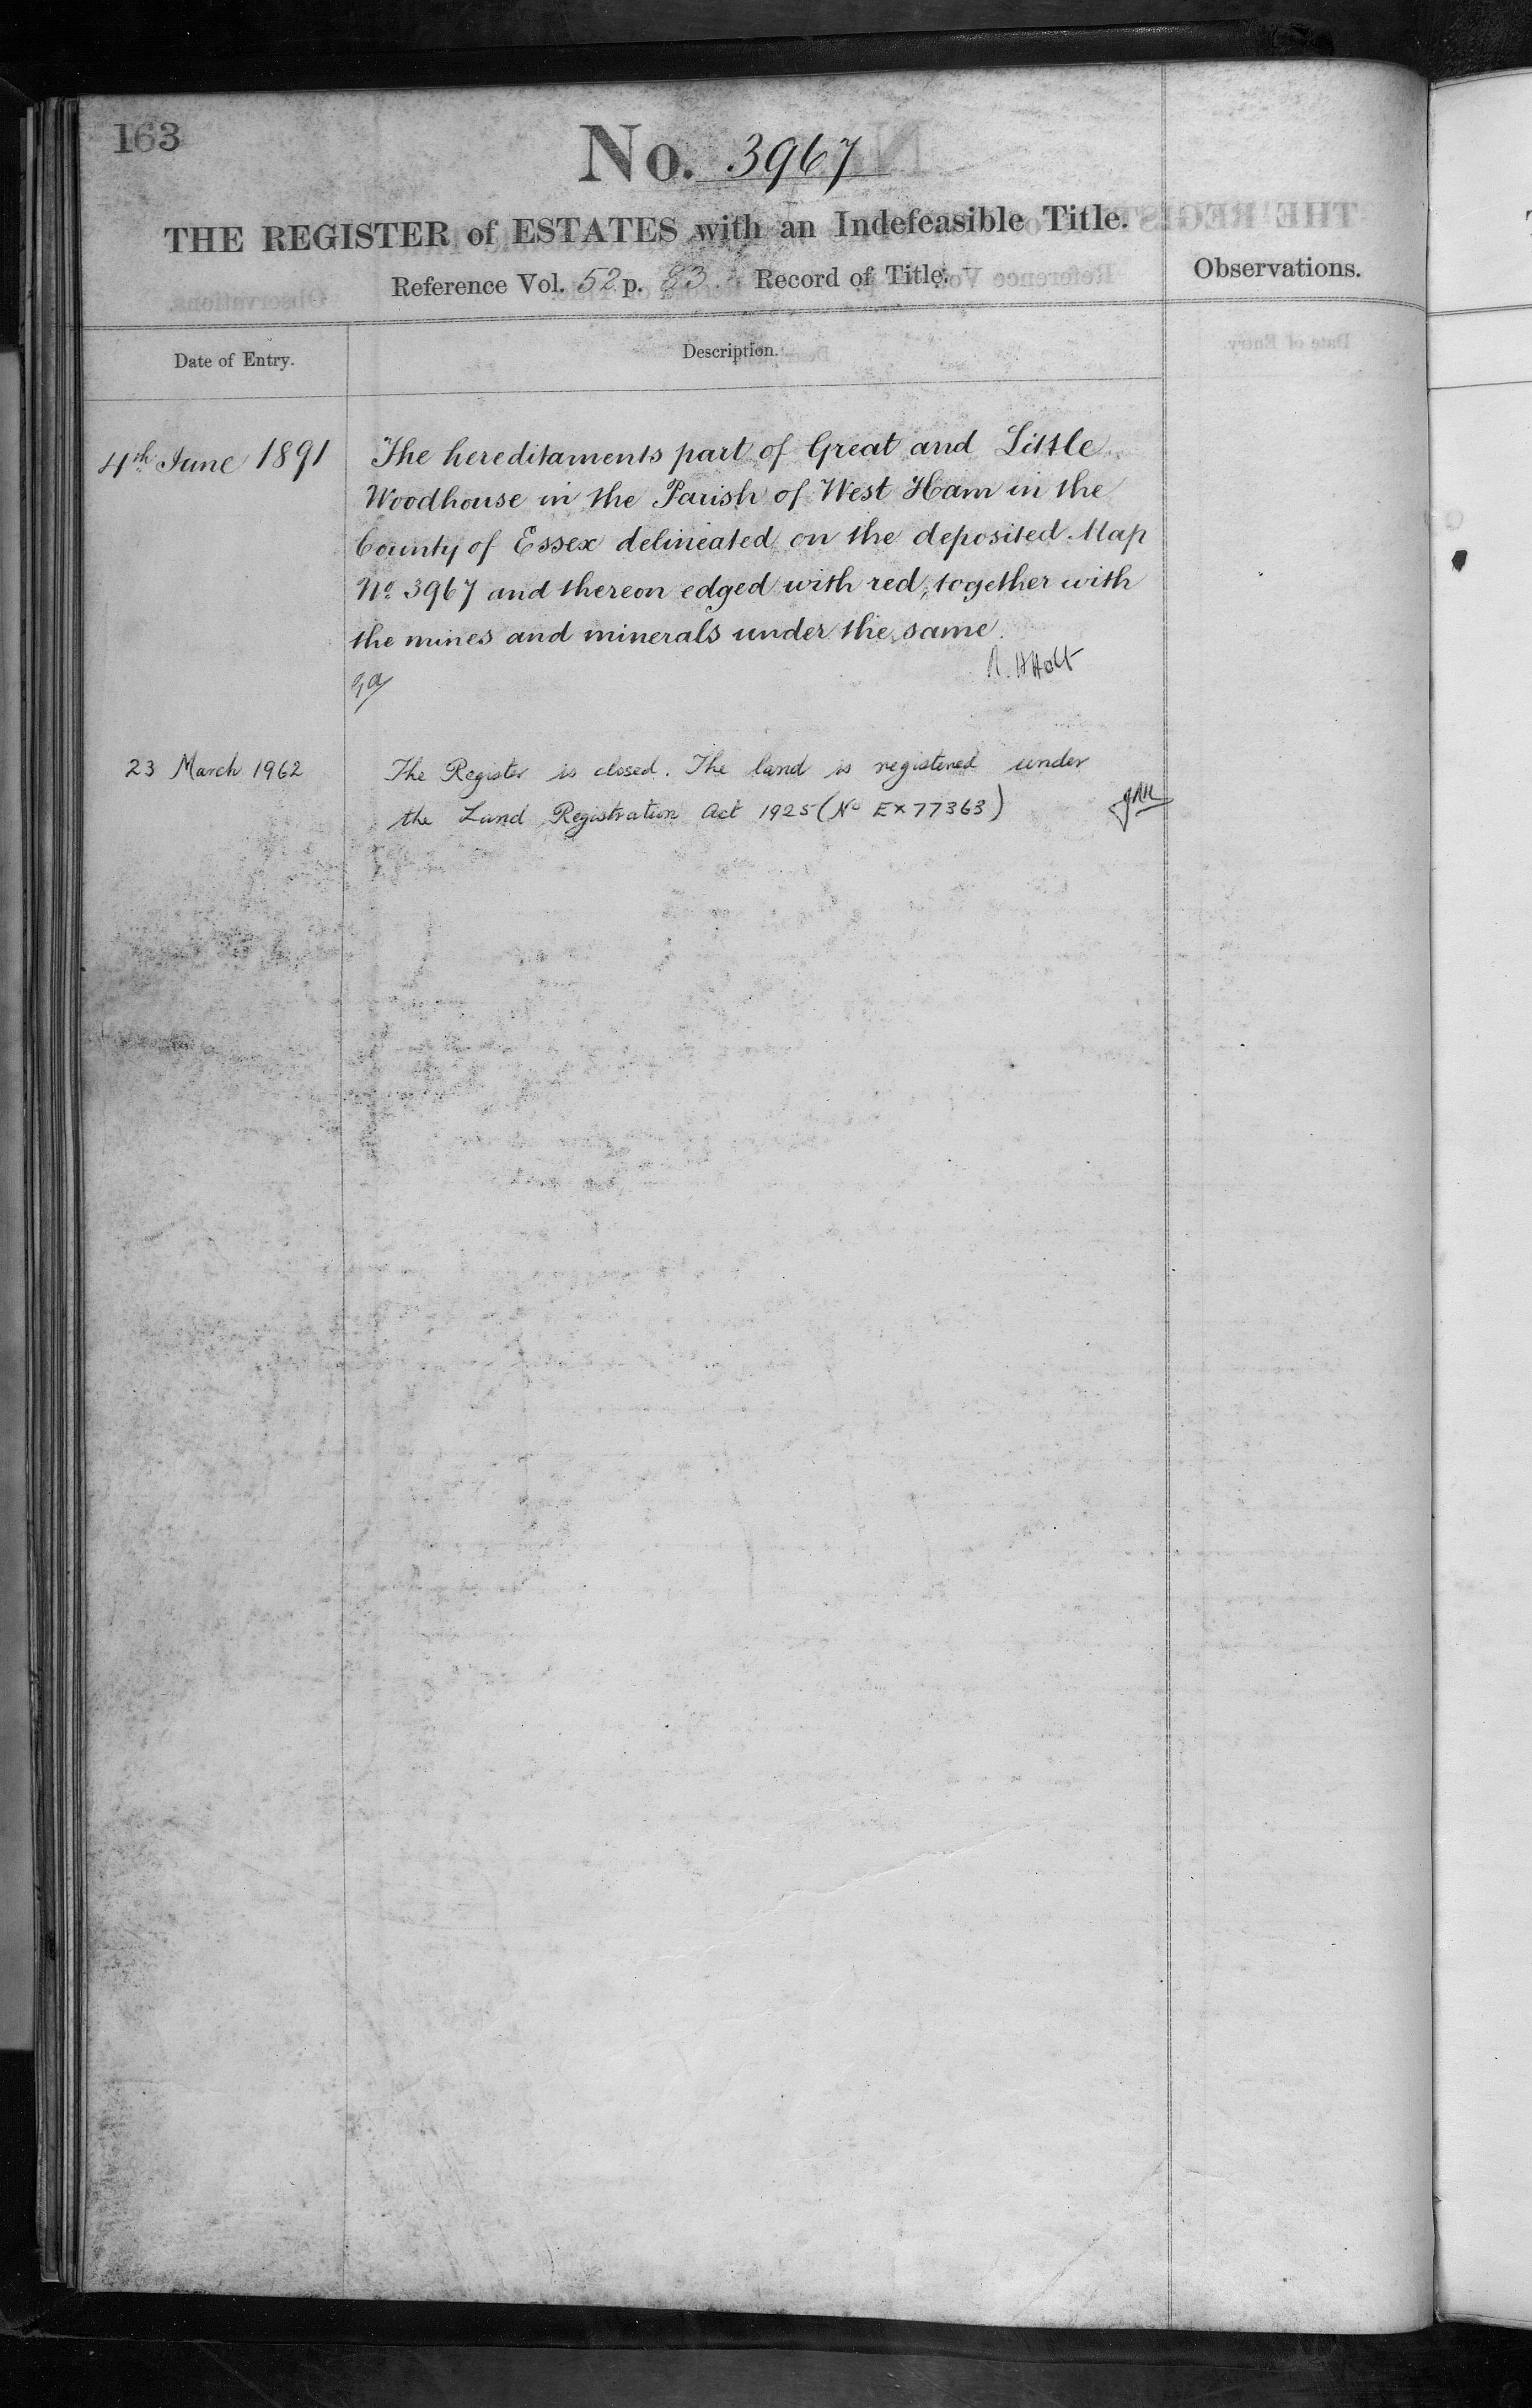 163
No. 3967
THE REGISTER of ESTATES with an Indefeasible Title.
Reference Vol. 52 p. 83. Record of Title.
Observations.
Date of Entry.
Description.
4th June 1891
The hereditaments part of Great and Little
Woodhouse in the Parish of West Ham in the
County of Essex delineated on the deposited Map
No. 3967 and thereon edged with red, together with
the mines and minerals under the same.
R. H Holt
23 March 1962
The Register is closed. The land is registered under
the Land Registration Act 1925 (No EX77363)